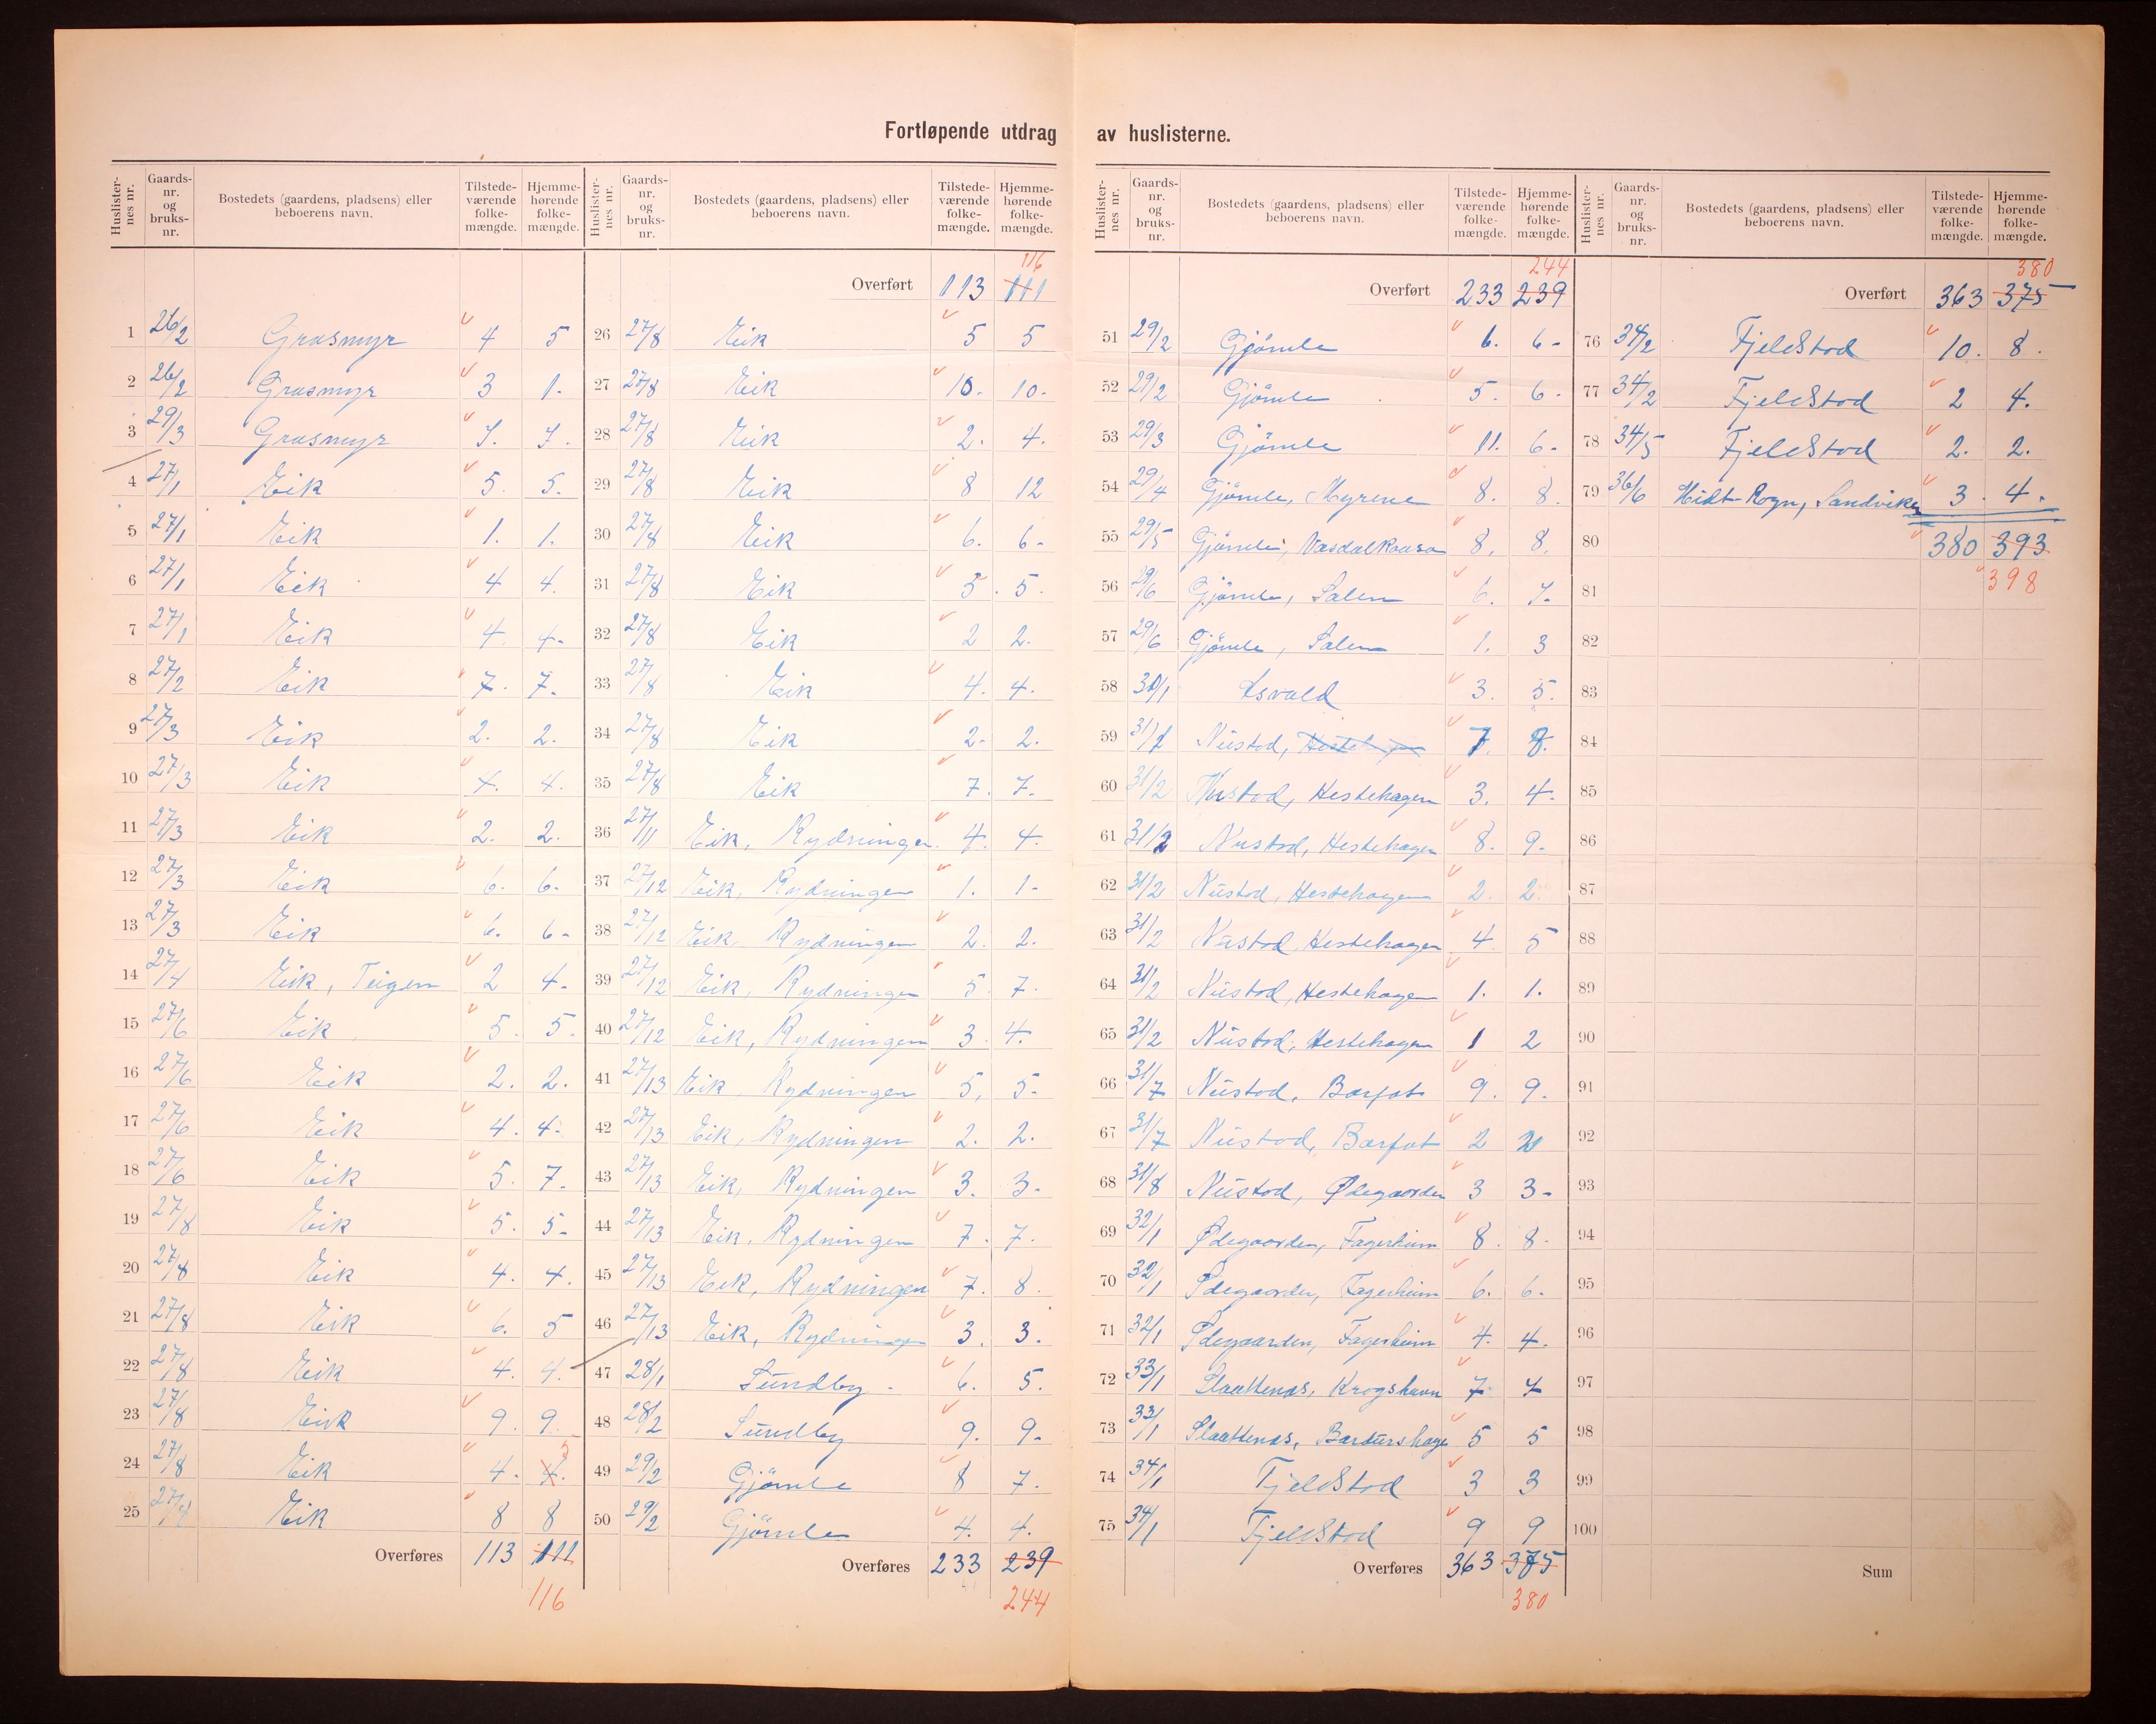 Fortløpende utdrag av huslisterne.
Huslister-nes nr. | Gaards-nr. og bruks-nr. | Bostedets (gaardens, pladsens) eller beboerens navn. | Tilstede-værende folke-mængde. | Hjemme-hørende folke-mængde.
1 26/2 Grasmyr 4 5
2 26/2 Grasmyr 3 1.
3 29/3 Grasmyr 7. 7.
4 27/1 Eik 5. 5.
5 27/1 Eik 1. 1.
6 27/1 Eik 4 4.
7 27/1 Eik 4. 4-
8 27/2 Eik 7. 7-
9 27/3 Eik 2. 2.
10 27/3 Eik 4. 4.
11 27/3 Eik 2. 2.
12 27/3 Eik 6. 6-
13 27/3 Eik 6. 6-
14 27/4 Eik, Teigen 2 4-
15 27/6 Eik 5. 5.
16 27/6 Eik 2. 2.
17 27/6 Eik 4. 4-
18 27/6 Eik 5. 7-
19 27/8 Eik 5. 5-
20 27/8 Eik 4. 4.
21 27/8 Eik 6. 5
22 27/8 Eik 4. 4.
23 27/8 Eik 9. 9.
24 27/8 Eik 4. 4.
25 Eik 8 8
Overføres 113 111
116
Huslister-nes nr. | Gaards-nr. og bruks-nr. | Bostedets (gaardens, pladsens) eller beboerens navn. | Tilstede-værende folke-mængde. | Hjemme-hørende folke-mængde.
116
Overført 113 111
26 27/8 Eik 5 5
27 27/8 Eik 10. 10.
28 27/8 Eik 2. 4.
29 27/8 Eik 8 12
30 27/8 Eik 6. 6-
31 27/8 Eik 5. 5.
32 27/8 Eik 2 2.
33 27/8 Eik 4. 4.
34 27/8 Eik 2- 2.
35 27/8 Eik 7. 7.
36 27/11 Eik, Rydningen. 4. 4.
37 27/12 Eik, Rydningen 1. 1-
38 27/12 Eik, Rydningen 2. 2.
39 27/12 Eik, Rydningen 5 7.
40 27/12 Eik, Rydningen 3. 4.
41 27/13 Eik, Rydningen 5, 5-
42 27/13 Eik, Rydningen 2. 2.
43 27/13 Eik, Rydningen 3. 3-
44 27/13 Eik, Rydningen 7. 7.
45 27/13 Eik, Rydningen 7. 8.
46 27/13 Eik, Rydningen 3. 3.
47 28/1 Sundby 6. 5.
48 28/2 Sundby 9. 9-
49 29/2 Gjömle 8 7.
50 29/2 Gjömle 4. 4.
Overføres 233 239
244
Huslister-nes nr. | Gaards-nr. og bruks-nr. | Bostedets (gaardens, pladsens) eller beboerens navn. | Tilstede-værende folke-mængde. | Hjemme-hørende folke-mængde.
244
Overført 233 239
51 29/2 Gjömle 6. 6-
52 29/2 Gjömle 5. 6-
53 29/3 Gjömle 11. 6-
54 29/4 Gjömle, Myrene 8. 8.
55 29/5 Gjömle, 8. 8.
56 29/6 Gjömle, Salen 6. 7.
57 29/6 Gjömle, Salen 1. 3
58 30/1 3. 5.
59 31/1 Nustod, 7. 8.
60 31/2 Nustod, Hestehagen 3. 4-
61 31/2 Nustod, Hestehagen 8. 9-
62 31/2 Nustod, Hestehagen 2. 2
63 31/2 Nustod, Hestehagen 4 5
64 31/2 Nustod, Hestehagen 1. 1.
65 31/2 Nustod, Hestehagen 1 2
66 31/7 Nustod, Barfot 9. 9.
67 31/7 Nustod, Barfot 2 2
68 31/8 Nustod, Ødegaarden 3 3-
69 32/1 Ødegaarden, Fagerheim 8. 8.
70 32/1 Ødegaarden, Fagerheim 6. 6.
71 32/1 Ødegaarden, Fagerheim 4. 4.
72 33/1 Slaattenæs, Krogshavn 7. 7
73 33/1 Slaattenæs, 5 5
74 34/1 Fjeldstod 3 3
75 34/1 Fjeldstod 9 9
Overføres 363 375
380
Huslister-nes nr. | Gaards-nr. og bruks-nr. | Bostedets (gaardens, pladsens) eller beboerens navn. | Tilstede-værende folke-mængde. | Hjemme-hørende folke-mængde.
380
Overført 363 375
76 34/2 Fjeldstod 10. 8.
77 34/2 Fjeldstod 2 4.
78 34/5 Fjeldstod 2. 2.
79 36/6 Midt-Rogn, Sandviken 3. 4.
80 380 393
81 398
82
83
84
85
86
87
88
89
90
91
92
93
94
95
96
97
98
99
100
Sum